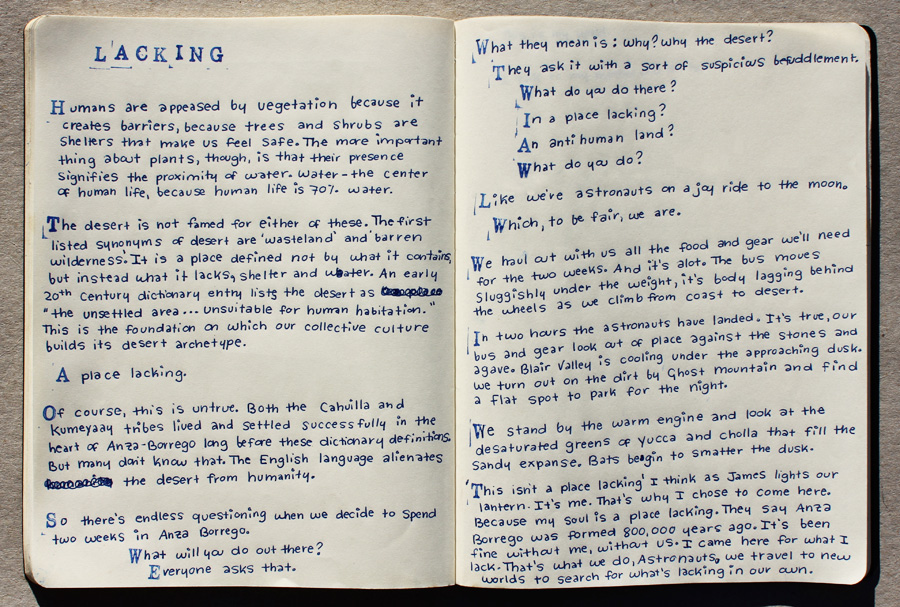 LACKING
Humans are appeased by vegetation because it
creates barriers, because trees and shrubs are
shelters that make us feel safe. The more important
thing about plants, though, is that their presence
signifies the proximity of water. Water - the center
of human life, because human life is 70% water.
The desert is not famed for either of these. The first
listed synonyms of desert are 'wasteland' and 'barren
wilderness'. It is a place defined not by what it contains,
but instead what it lacks, shelter and water. An early
20th Century dictionary entry lists the desert as
"the unsettled area... unsuitable for human habitation."
This is the foundation on which our collective culture
builds its desert archetype.
A place lacking.
Of course, this is untrue. Both the Cahuilla and
Kumeyaay tribes lived and settled successfully in the
heart of Anza-Borrego long before these dictionary definitions.
But many don't know that. The English language alienates
the desert from humanity.
So there's endless questioning when we decide to spend
two weeks in Anza Borrego.
What will you do out there?
Everyone asks that.
What they mean is: why? why the desert?
They ask it with a sort of suspicious befuddlement.
What do you do there?
In a place lacking?
An anti human land?
What do you do?
Like we're astronauts on a joy ride to the moon.
Which, to be fair, we are.
We haul out with us all the food and gear we'll need
for the two weeks. And it's alot. The bus moves
sluggishly under the weight, it's body lagging behind
the wheels as we climb from coast to desert.
In two hours the astronauts have landed. It's true, our
bus and gear look out of place against the stones and
agave. Blair Valley is cooling under the approaching dusk.
we turn out on the dirt by Ghost mountain and find
a flat spot to park for the night.
We stand by the warm engine and look at the
desaturated greens of yucca and cholla that fill the
sandy expanse. Bats begin to smatter the dusk.
'This isn't a place lacking' I think as James lights our
lantern. It's me. That's why I chose to come here.
Because my soul is a place lacking. They say Anza
Borrego was formed 800,000 years ago. It's been
fine without me, without us. I came here for what I
lack. That's what we do, Astronauts, we travel to new
worlds to search for what's lacking in our own.